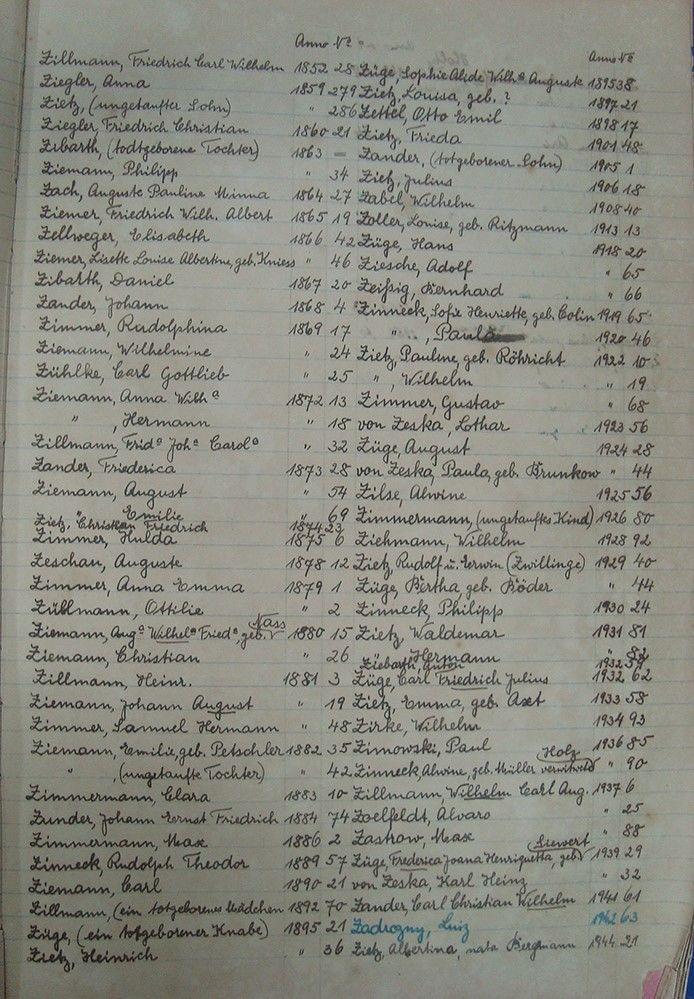 Anno Nº
Zillmann, Friedrich Carl Wilhelm 1852 28
Ziegler, Anna 1859 279
Zietz, (ungetaufter Sohn) " 286
Ziegler, Friedrich Christian 1860 21
Zibarth, (todtgeborene Tochter) 1863 –
Ziemann, Philipp " 34
Zach, Auguste Pauline Minna 1864 27
Ziemer, Friedrich Wilh. Albert 1865 19
Zellweger, Elisabeth 1866 42
Ziemer, Lisette Louise Albertine, geb. Kniess " 46
Zibarth, Daniel 1867 20
Zander, Johann 1868 4
Zimmer, Rudolphina 1869 17
Ziemann, Wilhelmine " 24
Zühlke, Carl Gottlieb " 25
Ziemann, Anna Wilhª 1872 13
" , Hermann " 18
Zillmann, Fridª Johª Carolª " 32
Zander, Friederica 1873 28
Ziemann, August " 54
" Emilie " 69
Zietz, Christian Friedrich 1874 23
Zimmer, Hulda 1875 6
Zeschau, Auguste 1878 12
Zimmer, Anna Emma 1879 1
Züblmann, Ottilie " 2
Ziemann, Augª Wilhelª Friedª, geb. Nass 1880 15
Ziemann, Christian " 26
Zillmann, Heinr. 1881 3
Ziemann, Johann August " 19
Zimmer, Samuel Hermann " 48
Ziemann, Emilie, geb. Petschler 1882 35
" , (ungetaufte Tochter) " 42
Zimmermann, Clara 1883 10
Zunder, Johann Ernst Friedrich 1884 74
Zimmermann, Max 1886 2
Zinneck, Rudolph Theodor 1889 57
Ziemann, Carl 1890 21
Zillmann, (ein totgeborenes Mädchen 1892 70
Züge, (ein totgeborener Knabe) 1895 21
Zietz, Heinrich " 36
Anno Nº
Züge, Sophie Alide Wilhª Auguste 1895 38
Zietz, Louisa, geb. ? 1897 21
Zettel, Otto Emil 1898 17
Zietz, Frieda 1901 48
Zander, (totgeborener Sohn) 1905 1
Zietz, Julius 1906 18
Zabel, Wilhelm 1908 40
Zoller, Louise, geb. Ritzmann 1913 13
Züge, Hans 1918 20
Ziesche, Adolf " 65
Zeißig, Bernhard " 66
Zinneck, Sofie Henriette, geb. Colin 1919 65
" , Paula 1920 46
Zietz, Pauline, geb. Röhricht 1922 10
" , Wilhelm " 19
Zimmer, Gustav " 68
von Zeska, Lothar 1923 56
Züge, August 1924 28
von Zeska, Paula, geb. Brunkow " 44
Zilse, Alwine 1925 56
Zimmermann, (ungetauftes Kind) 1926 80
Ziehmann, Wilhelm 1928 92
Zietz, Rudolf u. Erwin (Zwillinge) 1929 40
Züge, Bertha geb. Böder " 44
Zinneck, Philipp 1930 24
Zietz, Waldemar 1931 81
" , Hermann "
Ziebarth, 1932
Züge, Carl Friedrich Julius 1932 62
Zietz, Emma, geb. Axt 1933 58
Zirke, Wilhelm 1934 93
Zimowski, Paul 1936 85
Zinneck, Alwine, geb. Müller Holz " 90
Zillmann, Wilhelm Carl Aug. 1937 6
Zoelfeldt, Alvaro " 25
Zastrow, Max " 88
Züge, Frederica Joana Henriquetta, geb. Sievert 1939 29
von Zeska, Karl Heinz " 32
Zander, Carl Christian Wilhelm 1941 61
Zadrozny, Luiz 1942 63
Zietz, Albertina, nata Bergmann 1944 21